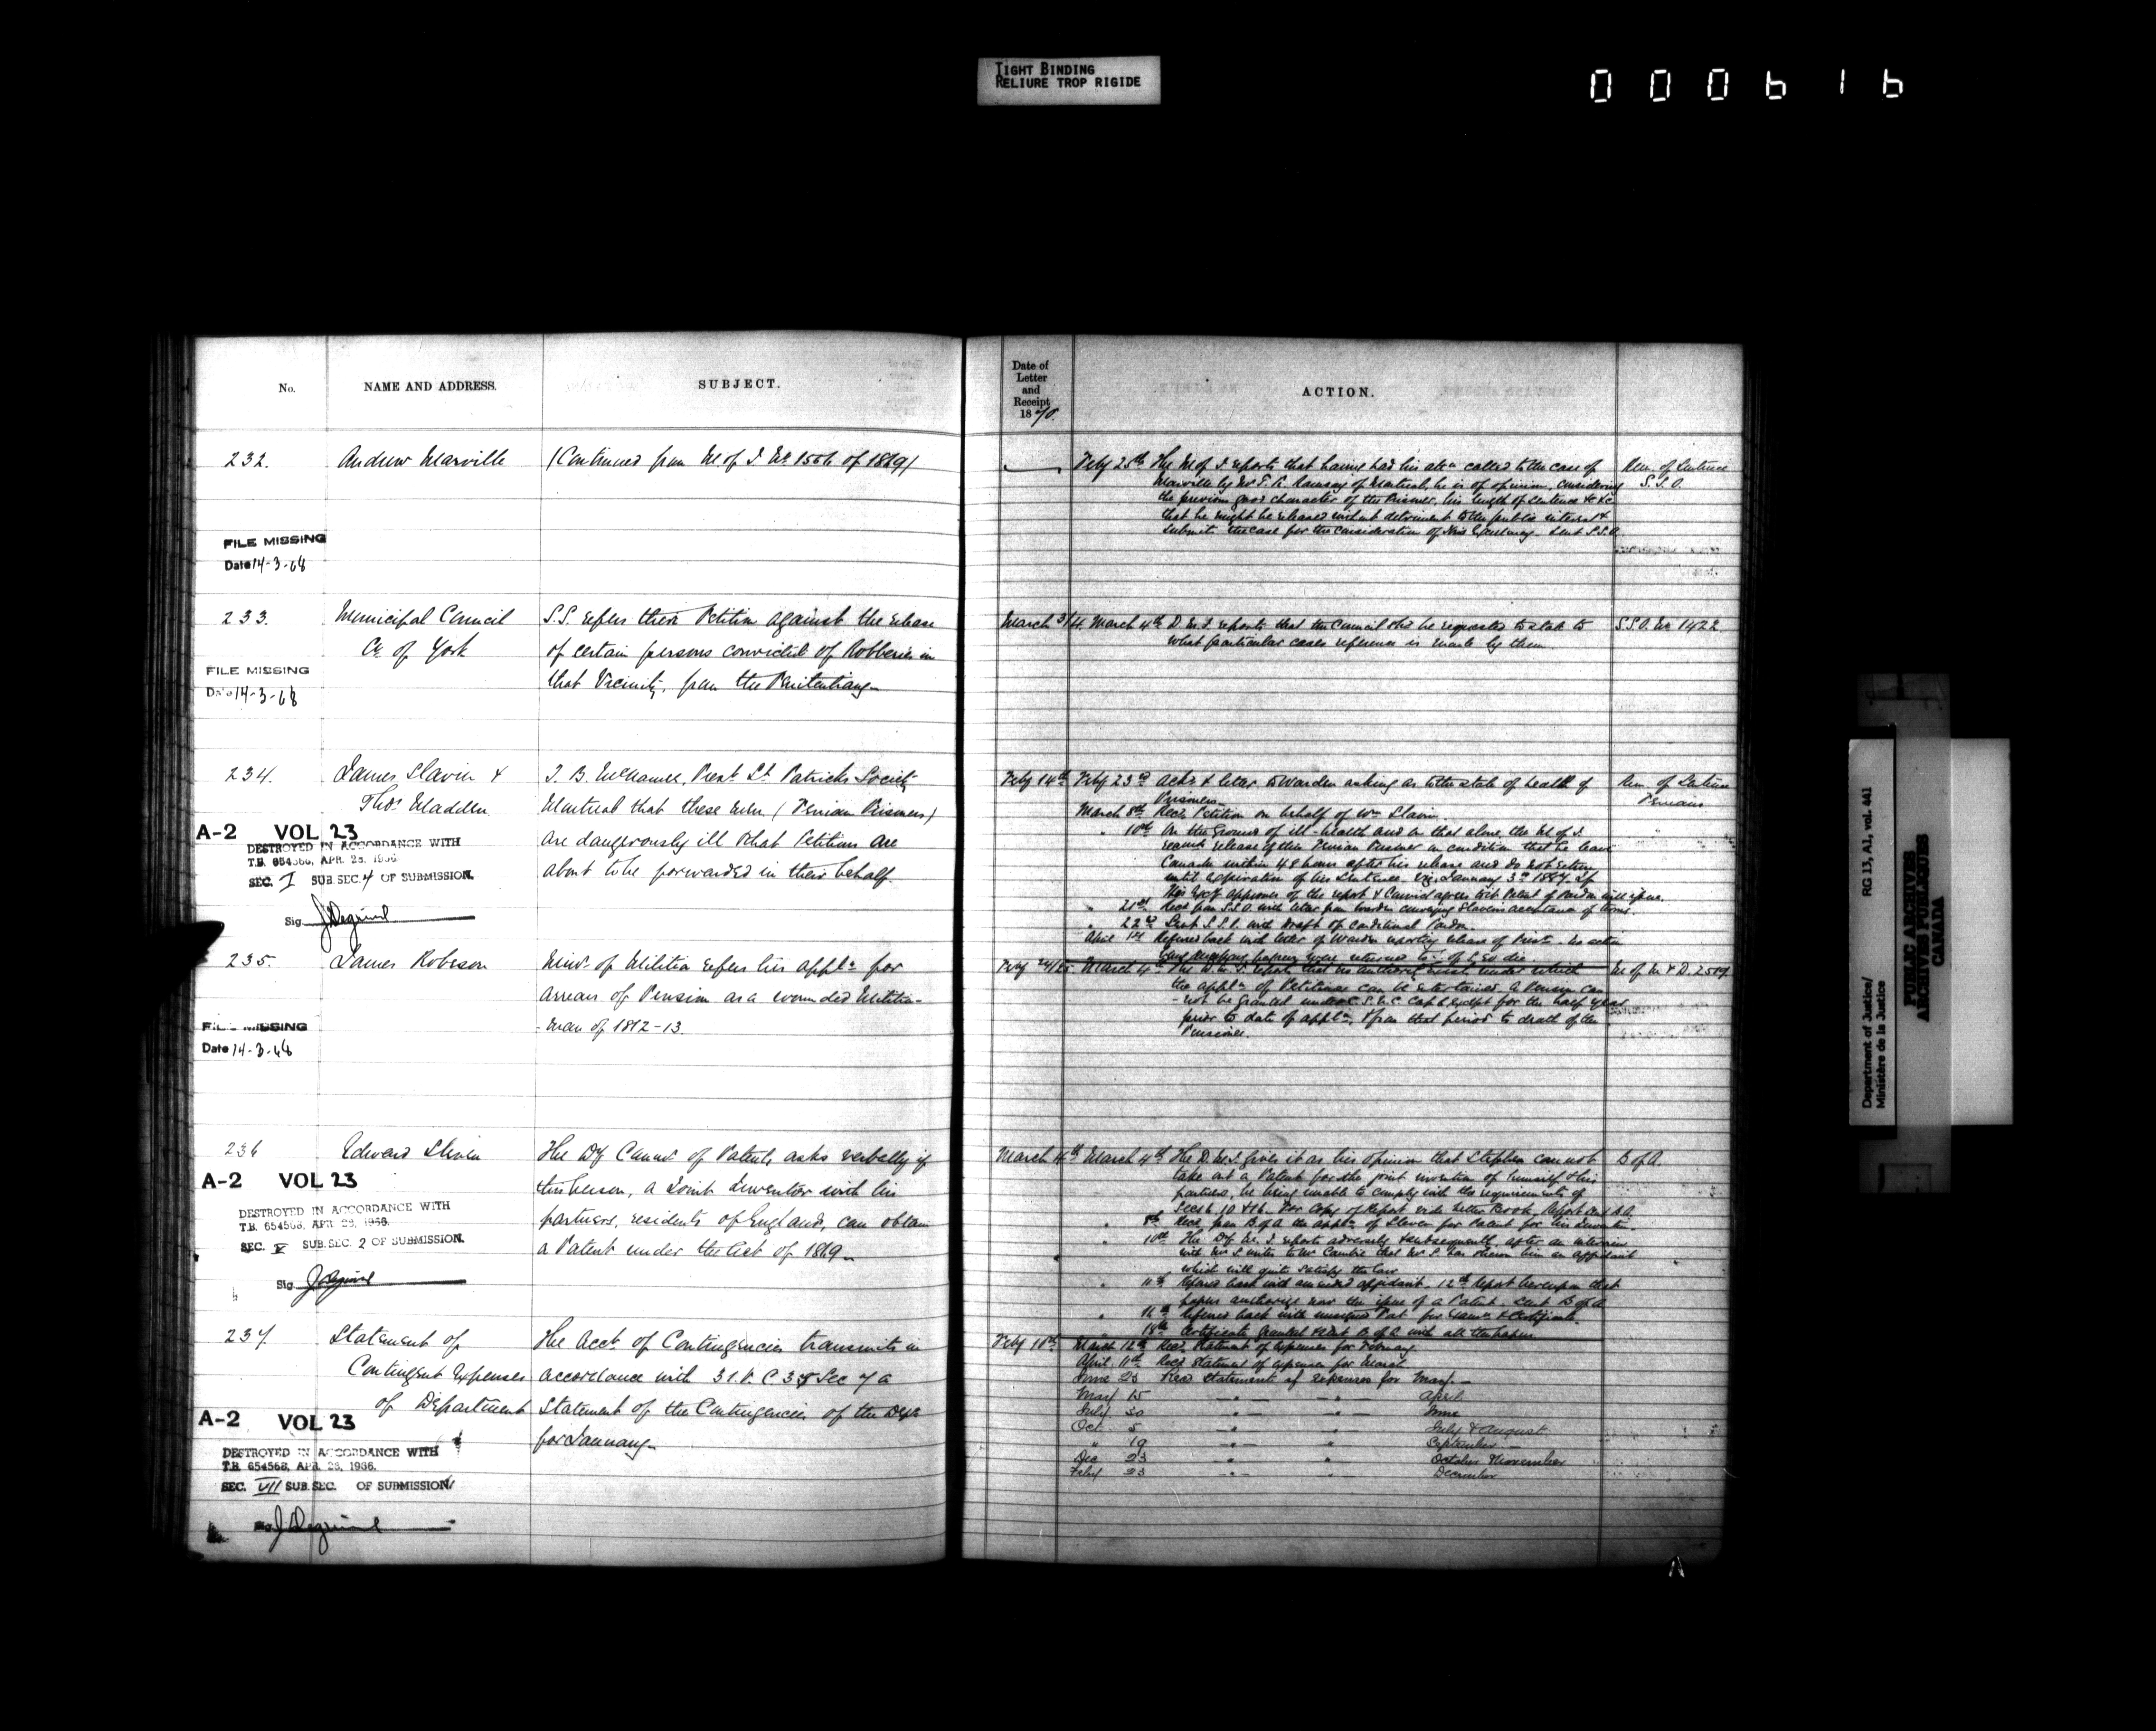 TIGHT BINDING
RELIURE TROP RIGIDE
000616
No.
NAME AND ADDRESS.
SUBJECT.
Date of
Letter
and
Receipt
1870.
ACTION.
232. Andrew Marville (Continued from M of J No 1556 of 1869)
Feby 25th The M of J reports that having had his attn called to the case of
Marville by Mr T. K. Ramsay of Montreal, he is of opinion, considering
the previous good character of the Prisoner, his length of Sentence &c &c
that he might be released without detriment to the public interest &
Submits the case for the consideration of His Excellency. Sent S.S.O.
Rem. of Sentence
S.S.O.
FILE MISSING
Date 14-3-68
233. Municipal Council S.S. refers their Petition against the release
Co of York of certain persons convicted of Robberies in
that Vicinity, from the Penitentiary
FILE MISSING
Date 14-3-68
March 3/4 March 4th D. M. J. reports that the Council shd be requested to state to
what particular cases reference is made by them.
S.S.O. No 1422.
234. James Slavin & J. B. Presdt St Patricks Society
Thos Madden Montreal that these men (Fenian Prisoners)
are dangerously ill & that Petitions are
about to be forwarded in their behalf.
A-2 VOL 23
DESTROYED IN ACCORDANCE WITH
T.B. 654568, APR. 28, 1966.
SEC. I SUB.SEC. 4 OF SUBMISSION.
Sig
Feby 14th Feby 23rd Ackd & letter to Warden asking as to the state of health of
Prisoners
March 8th Recd Petition on behalf of Wm Slavin
" 10th On the ground of ill-health and on that alone, the M of J.
release of this Fenian Prisoner on condition that he leave
Canada within 48 hours after his release and do not return
until expiration of his Sentence viz January 3rd 1887. If
His Excy approves of the report & Council agrees to it Patent of Pardon will issue.
" 21st Recd from S.S.O. with letter from Warden conveying Slavin's acceptance of terms.
" 22nd Sent S.S.P. with draft of conditional Pardon.
April 14 Referred back with letter of Warden reporting release of Prisr. No action
Rem. of Sentence
Fenians
235. James Robeson Minr of Militia refers his appln for
arrears of Pension as a wounded Militia-
-man of 1812-13.
FILE MISSING
Date 14-3-68
Feby 24/25 March 4th The D. M. J. reports that no authority exists under which
the appln of Petitioner can be entertained. A Pension can
-not be granted under C.S.U.C. Cap 6 except for the half year
prior to date of appln, & from that period to death of the
Pensioner.
M of M & D. 2517
236 Edward Slaven The Dy Commr of Patents asks verbally if
this person, a Joint Inventor with his
partners, residents of England, can obtain
a Patent under the Act of 1869
A-2 VOL 23
DESTROYED IN ACCORDANCE WITH
T.B. 654568, APR. 28, 1966.
SEC. V SUB.SEC. 2 OF SUBMISSION.
Sig
March 4th March 4th The D. M. J. gives it as his opinion that Stephen cannot
take out a Patent for the joint invention of himself & his
partners, he being unable to comply with the requirements of
Secs 6, 10 & 16. For Copy of Report vide Letter Book,
" 8th Recd from B of A the appln of Slaven for Patent for his Invention
" 10th The Dy M. J. reports adversely & subsequently after an interview
with Mr S writes to Mr Cambie that Mr S. has shewn him an affidavit
which will quite satisfy the law
" 11th Refd back with amended affidavit. 12th Report hereupon that
papers authorize now the issue of a Patent. Sent B of A
" 16th Referred back with Pat. for Examn & Certificate.
" 18th Certificate granted & sent B of A with all the papers
B of A.
237. Statement of The Acct of Contingencies transmits in
Contingent Expenses accordance with 31. V. C. 35 Sec 7 a
of Department Statement of the Contingencies of the Dept
for January
A-2 VOL 23
DESTROYED IN ACCORDANCE WITH
T.B. 654568, APR. 28, 1966.
SEC. VII SUB.SEC. OF SUBMISSION
Feby 10th March 12th Recd Statement of expenses for February
April 11th Recd Statement of expenses for March
June 25 Recd Statement of expenses for May.
May 15 " " April
July 30 " " June
Oct 5 " " July & August
" 19 " " September
Dec 23 " " October & November
Feby 23 " " December
Department of Justice/
Ministère de la Justice
RG 13, A1, vol. 441
PUBLIC ARCHIVES
ARCHIVES PUBLIQUES
CANADA